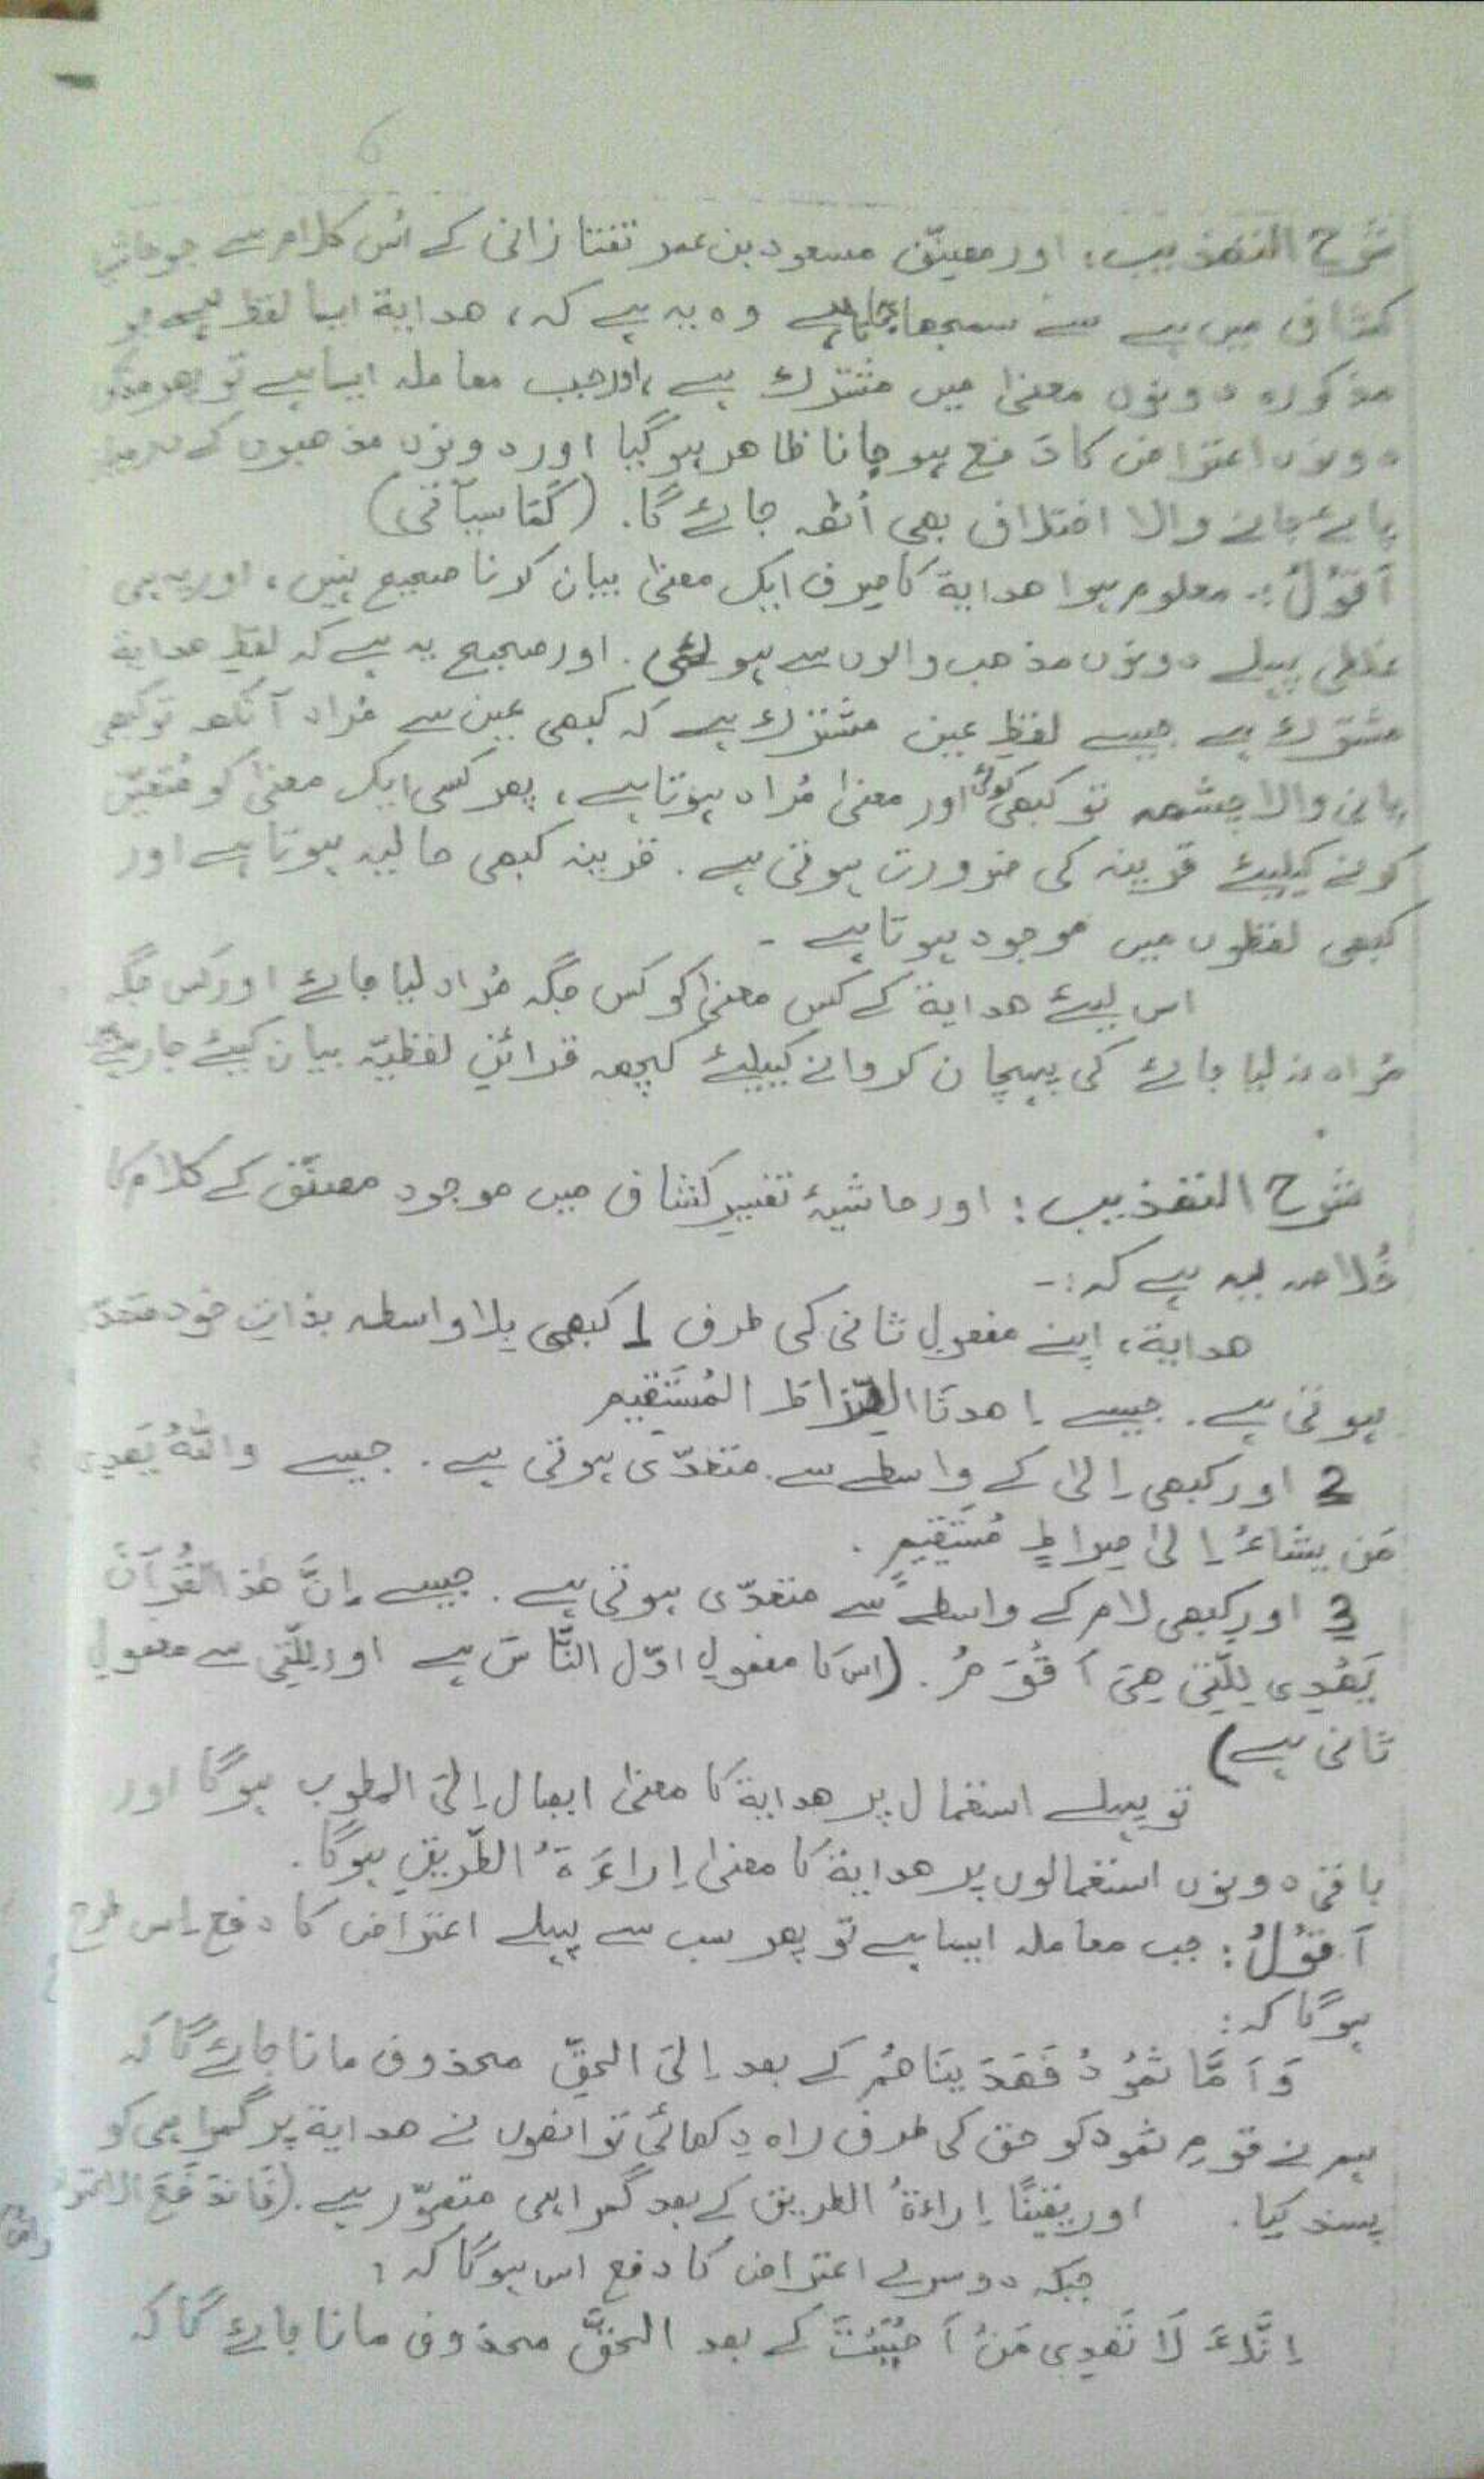 6
شرح التھذیب: اور مصنّف مسعود بن عمر تفتازانی کے اُس کلام سے جو حاشیۂ
کشاف میں ہے سے سمجھا جاتا ہے وہ یہ ہے کہ، ھدایة ایسا لفظ ہے جو
مذکورہ دونوں معنیٰ میں مشترک ہے، اور جب معاملہ ایسا ہے تو پھر
دونوں اعتراض کا دَفع ہو جانا ظاھر ہو گیا اور دونوں مذھبوں کے درمیان
پائے جانے والا اختلاف بھی اُٹھ جائے گا. (کَمَا سیأتی)
اَقُوْلُ:- معلوم ہوا ھدایة کا صِرف ایک معنیٰ بیان کرنا صحیح نہیں، اور یہ ہی
غلطی پہلے دونوں مذھب والوں سے ہو گئی. اور صحیح یہ ہے کہ لفظِ ھدایة
مشترک ہے جیسے لفظِ عین مشترک ہے کہ کبھی عین سے مُراد آنکھ تو کبھی
پانی والا چشمہ تو کبھی کوئی اور معنیٰ مُراد ہوتا ہے، پھر کسی ایک معنیٰ کو مُتعیّن
کرنے کیلیئے قرینہ کی ضرورت ہوتی ہے. قرینہ کبھی حالیہ ہوتا ہے اور
کبھی لفظوں میں موجود ہوتا ہے -
اس لیئے ھدایة کے کس معنیٰ کو کس جگہ مُراد لیا جائے اور کس جگہ
مُراد نہ لیا جائے کی پہچان کروانے کیلیئے کچھ قرائنِ لفظیّہ بیان کیئے جا رہے
شرح التھذیب: اور حاشیۂ تفسیر کشاف میں موجود مصنّف کے کلام کا
خُلاصہ یہ ہے کہ:-
ھدایة، اپنے مفعولِ ثانی کی طرف 1 کبھی بلا واسطہ بذاتِ خود متعدّی
ہوتی ہے. جیسے اِھدنَا الصِّرَاطَ المُستَقِیم
2 اور کبھی اِلیٰ کے واسطے سے متعدّی ہوتی ہے. جیسے واللّٰہُ یَھدِی
مَن یشاءُ اِلیٰ صِراطٍ مُستَقِیمٍ.
3 اور کبھی لام کے واسطے سے متعدّی ہوتی ہے. جیسے اِنَّ ھٰذَا القُرْآنَ
یَھْدِی لِلَّتِی ھِیَ اَقْوَمُ. (اس کا مفعولِ اوّل النَّاسَ ہے اور لِلَّتِی سے مفعولِ
ثانی ہے)
تو پہلے استعمال پر ھدایة کا معنیٰ ایصال اِلَی المطلوب ہوگا اور
باقی دونوں استعمالوں پر ھدایة کا معنیٰ اِراءَةُ الطَّریقِ ہوگا.
اَقُوْلُ: جب معاملہ ایسا ہے تو پھر سب سے پہلے اعتراض کا دفع اِس طرح
ہوگا کہ:
وَاَمَّا ثَمُوْدُ فَھَدَینَاھُم کے بعد اِلَی الحَقِّ محذوف مانا جائے گا کہ
ہم نے قومِ ثمود کو حق کی طرف راہ دِکھائی تو انھوں نے ھدایة پر گمراہی کو
پسند کیا. اور یقینًا اِراءةُ الطریق کے بعد گمراہی متصوّر ہے. (فَانْدَفَعَ الاعتراض
جبکہ دوسرے اعتراض کا دفع اس ہوگا کہ:
اِنَّكَ لَا تَھدِی مَنْ اَحْبَبْتَ کے بعد الحَقَّ محذوف مانا جائے گا کہ